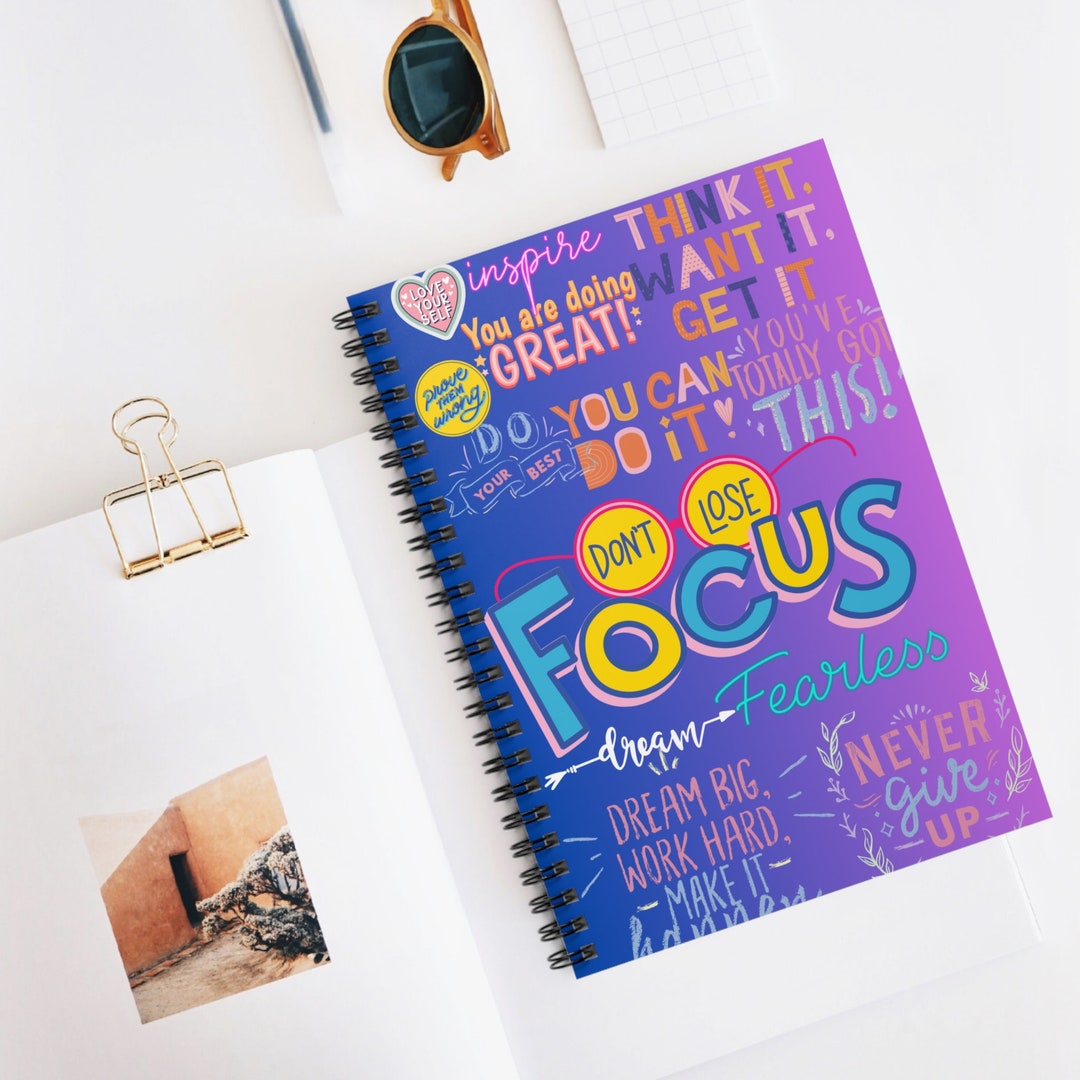 inspire
THINK IT,
WANT IT,
GET IT
LOVE
YOUR
SELF
You are doing
GREAT!
YOU'VE
TOTALLY GOT
THIS!
prove
THEM
wrong
YOU CAN
DO IT
DO
YOUR BEST
DON'T LOSE
FOCUS
Fearless
dream
DREAM BIG,
WORK HARD,
MAKE IT
happen
NEVER
give
UP